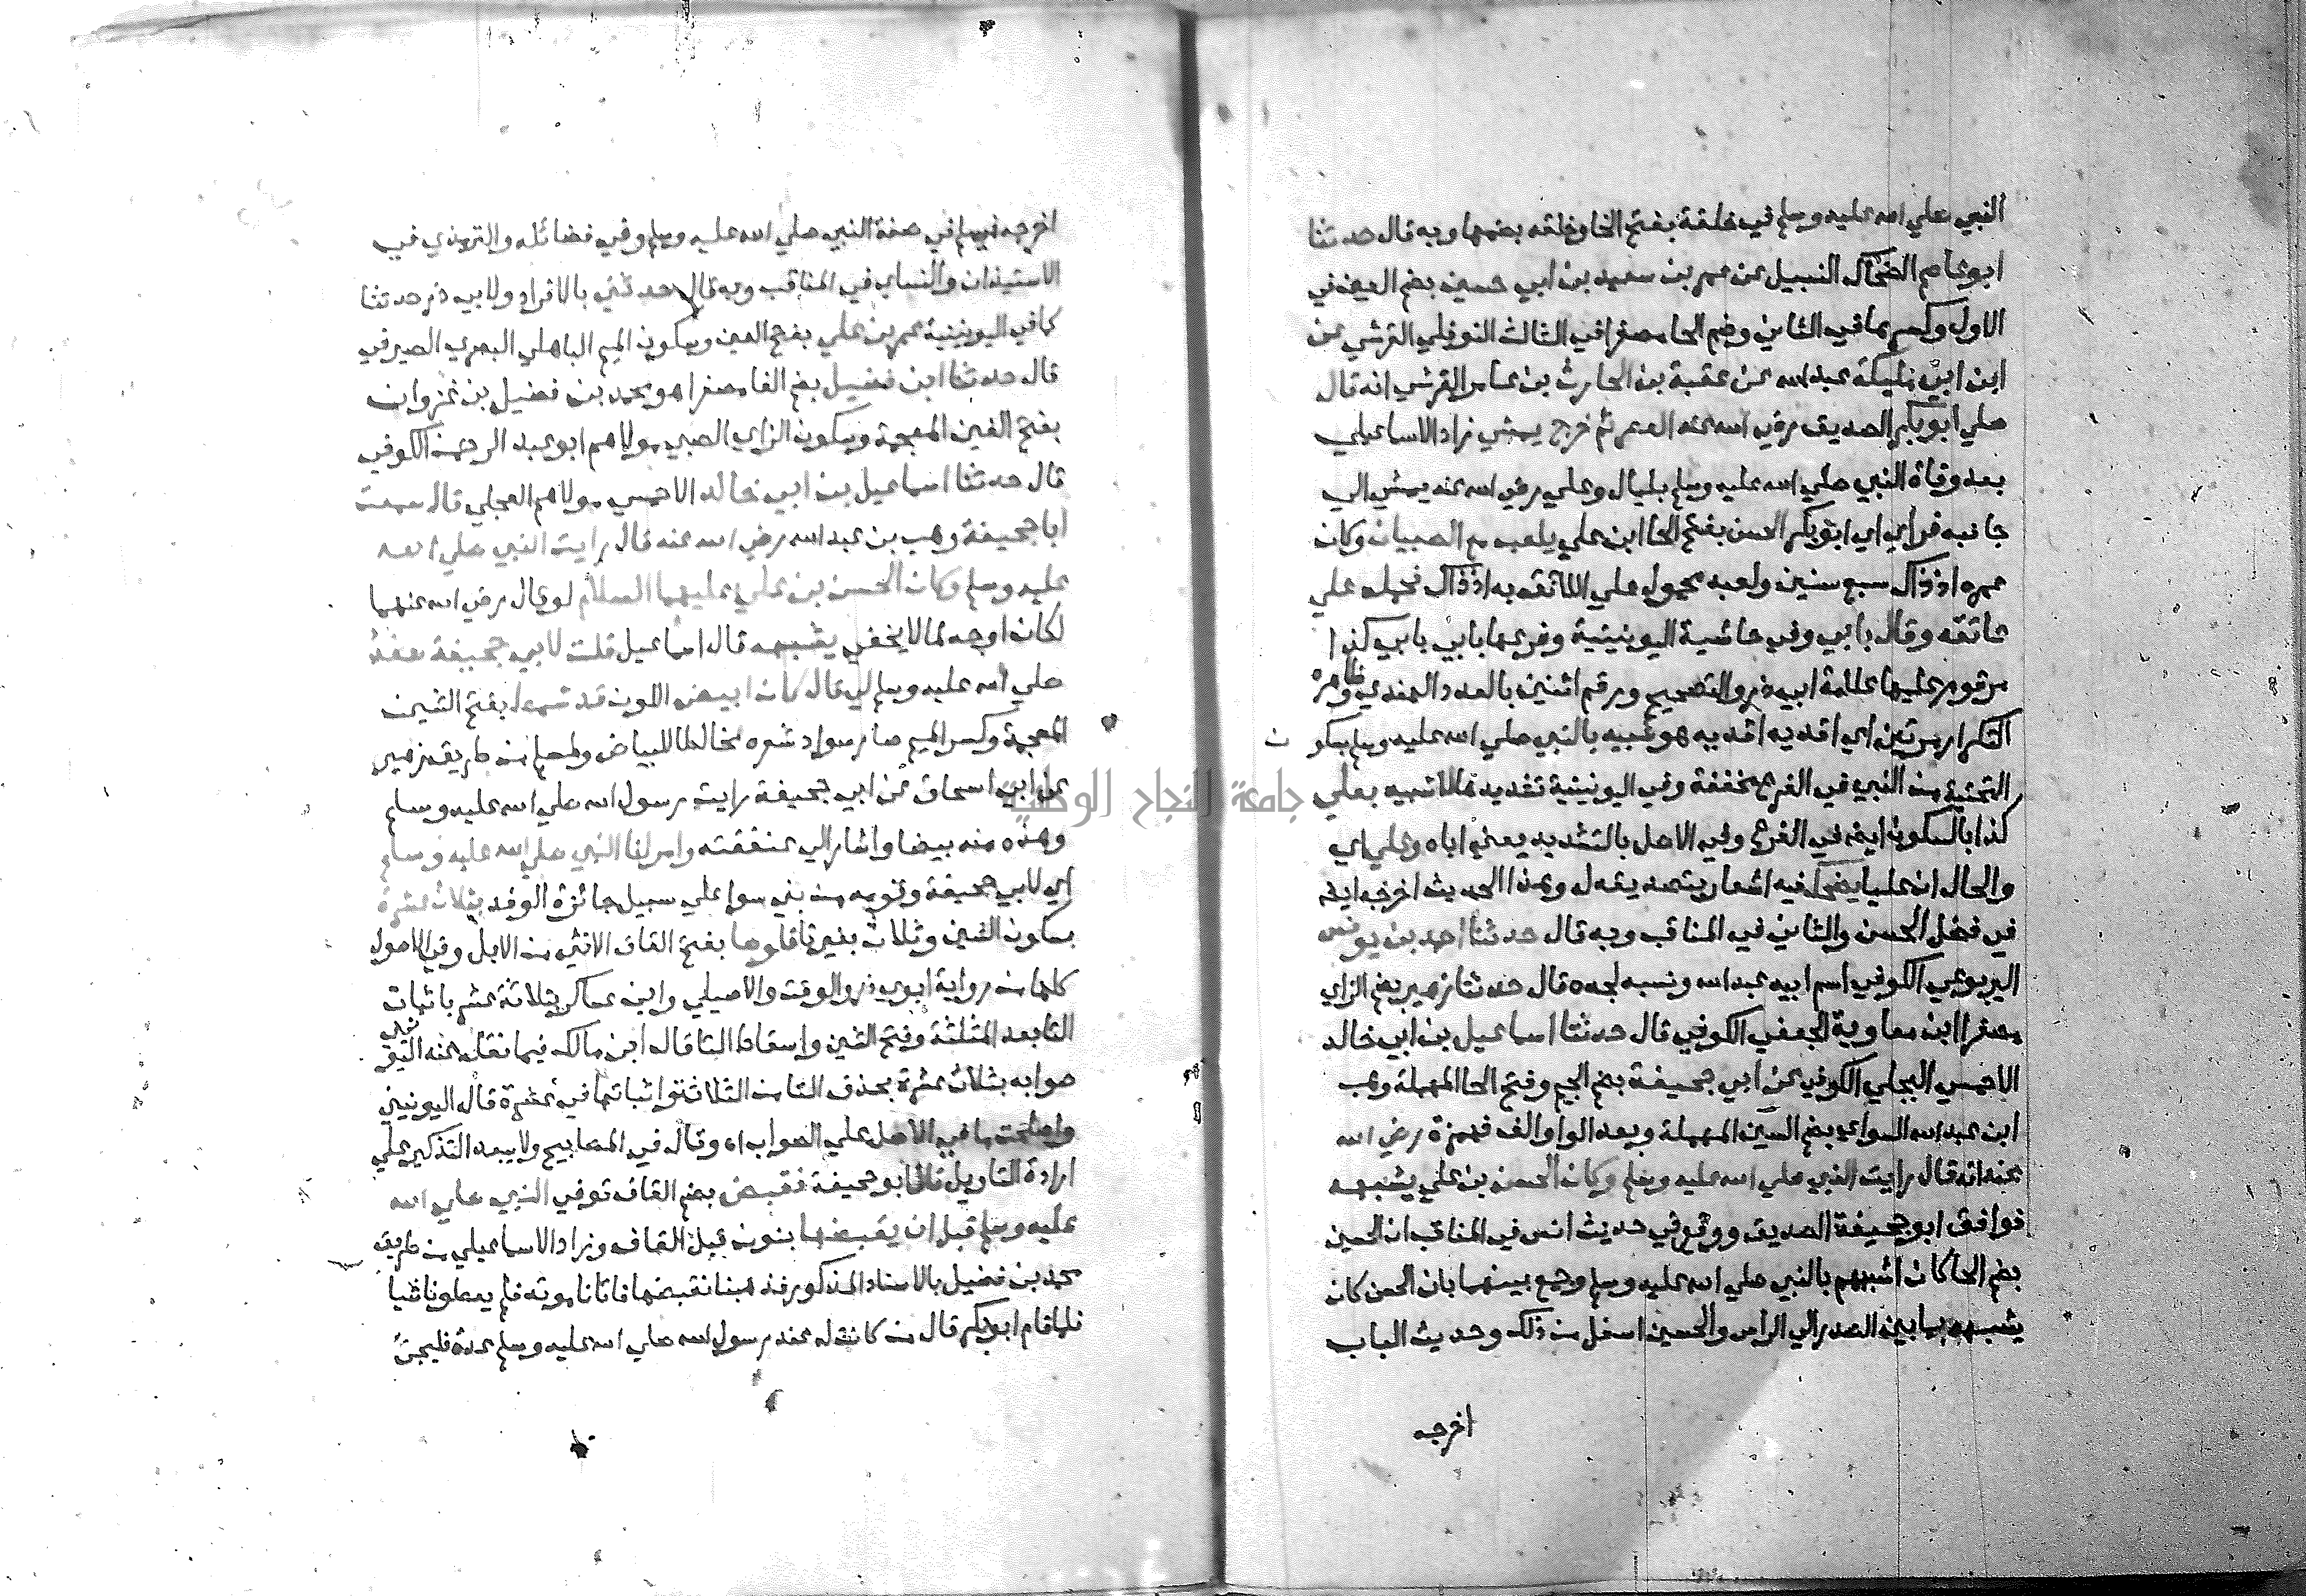 النبي صلي الله عليه وسلم في خلقة بفتح الخا وخلقه بضمها وبه قال حدثنا
ابو عاصم الضحاك النبيل عن عمر بن سعيد بن ابي حسين بضم العين في
الاول وكسرها في الثاني وضم الحا مصغرا في الثالث النوفلي القرشي عن
ابن ابي مليكة عبد الله عن عقبة بن الحارث بن عامر القرشي انه قال
صلي ابو بكر الصديق رضي الله عنه العصر ثم خرج يمشي زاد الاسماعيلي
بعد وفاة النبي صلي الله عليه وسلم بليال وعلي رضي الله عنه يمشي الي
جانبه فراي اي ابو بكر الحسن بفتح الحا ابن علي يلعب مع الصبيان وكان
عمره اذ ذاك سبع سنين ولعبه محمول علي اللائق به اذ ذاك فحمله علي
عاتقه وقال بابي وفي حاشية اليونينية وفرعها بابي بابي كذا
مرقوم عليها علامة ابي ذر والتصحيح ورقم اثنين بالعدد الهندي وظاهره
التكرار مرتين اي افديه افديه هو شبيه بالنبي صلي الله عليه وسلم بسكون
التحتية من النبي في الفرع مخففة وفي اليونينية تشديدها لا شبيه بعلي
كذا بالسكون ايضا في الفرع وفي الاصل بالتشديد يعني اباه وعلي اي
والحال ان عليا يضحك فيه اشعار بتصديقه له وهذا الحديث اخرجه ايضا
في فضل الحسن والثاني في المناقب وبه قال حدثنا احمد بن يونس
اليربوعي الكوفي اسم ابيه عبد الله ونسبه لجده قال حدثنا زهير بضم الزاي
مصغرا ابن معاوية الجعفي الكوفي قال حدثنا اسماعيل بن ابي خالد
الاحمسي البجلي الكوفي عن ابي جحيفة بضم الجيم وفتح الحا المهملة وهب
ابن عبد الله السواي بضم السين المهملة وبعد الواو الف فهمزة رضي الله
عنه انه قال رايت النبي صلي الله عليه وسلم وكان الحسن بن علي يشبهه
فوافق ابو جحيفة الصديق ووقع في حديث انس في المناقب ان الحسين
بضم الحا كان اشبههم بالنبي صلي الله عليه وسلم وجمع بينهما بان الحسن كان
يشبهه بما بين الصدر الي الراس والحسين اسفل من ذلك وحديث الباب
اخرجه
اخرجه مسلم في صفة النبي صلي الله عليه وسلم وفي فضائله والترمذي في
الاستيذان والنساي في المناقب وبه قال حدثني بالافراد ولابي ذر حدثنا
كما في اليونينية عمر بن علي بفتح العين وسكون الميم الباهلي البصري الصيرفي
قال حدثنا ابن فضيل بضم الفا مصغرا هو محمد بن فضيل بن غزوان
بفتح الغين المعجمة وسكون الزاي الضبي مولاهم ابو عبد الرحمن الكوفي
قال حدثنا اسماعيل بن ابي خالد الاحمسي مولاهم العجلي قال سمعت
ابا جحيفة وهب بن عبد الله رضي الله عنه قال رايت النبي صلي الله
عليه وسلم وكان الحسن بن علي عليهما السلام لو قال رضي الله عنهما
لكان اوجه لما لا يخفي يشبهه قال اسماعيل قلت لابي جحيفة صفه
صلي الله عليه وسلم لي قال كان ابيض اللون قد شمط بفتح الشين
المعجمة وكسر الميم صار سواد شعره مخالطا للبياض ولمسلم من طريق زهير
عن ابي اسحاق عن ابي جحيفة رايت رسول الله صلي الله عليه وسلم
وهذه منه بيضا واشار الي عنفقته وامر لنا النبي صلي الله عليه وسلم
اي لابي جحيفة وقومه من بني سوا علي سبيل جائزة الوفد بثلاث عشرة
بسكون الشين وثلاث بغير تا قلوصا بفتح القاف الانثي من الابل وفي الاصول
كلها من رواية ابوي ذر والوقت والاصيلي وابن عساكر بثلاثة عشر باثبات
التا بعد المثلثة وفتح الشين واسقاط التا قال ابن مالك فيما نقله عنه اليونيني
صوابه بثلاث عشرة بحذف التا من الثلاثة واثباتها في عشرة قال اليونيني
واصلحت ما في الاصل علي الصواب اه وقال في المصابيح ولا يبعد التذكير علي
ارادة التاويل قال ابو جحيفة فقبض بضم القاف توفي النبي صلي الله
عليه وسلم قبل ان يقبضها بنون قبل القاف وزاد الاسماعيلي من طريق
محمد بن فضيل بالاسناد المذكور فذهبنا نقبضها فاتانا موته فلم يعطونا شيا
فلما قام ابو بكر قال من كانت له عند رسول الله صلي الله عليه وسلم عدة فليجئ
جامعة النجاح الوطنية